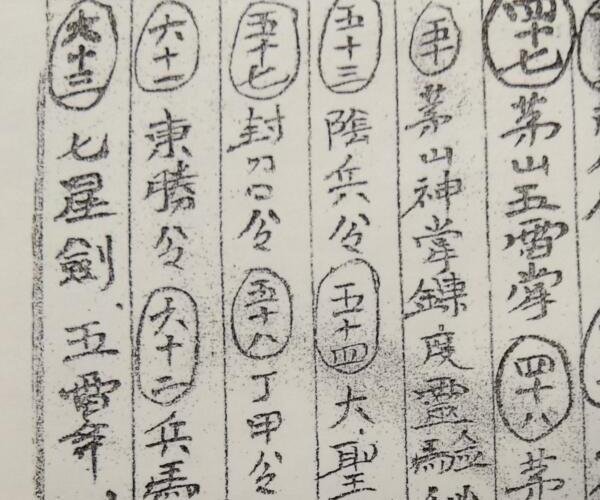 四十七 茅山五雷掌 四十八 茅
五十 茅山神掌鍊度靈驗
五十三 陰兵令 五十四 大聖
五十七 封刀口令 五十八 丁甲令
六十一 東勝令 六十二 兵馬
六十三 七星劍、五雷